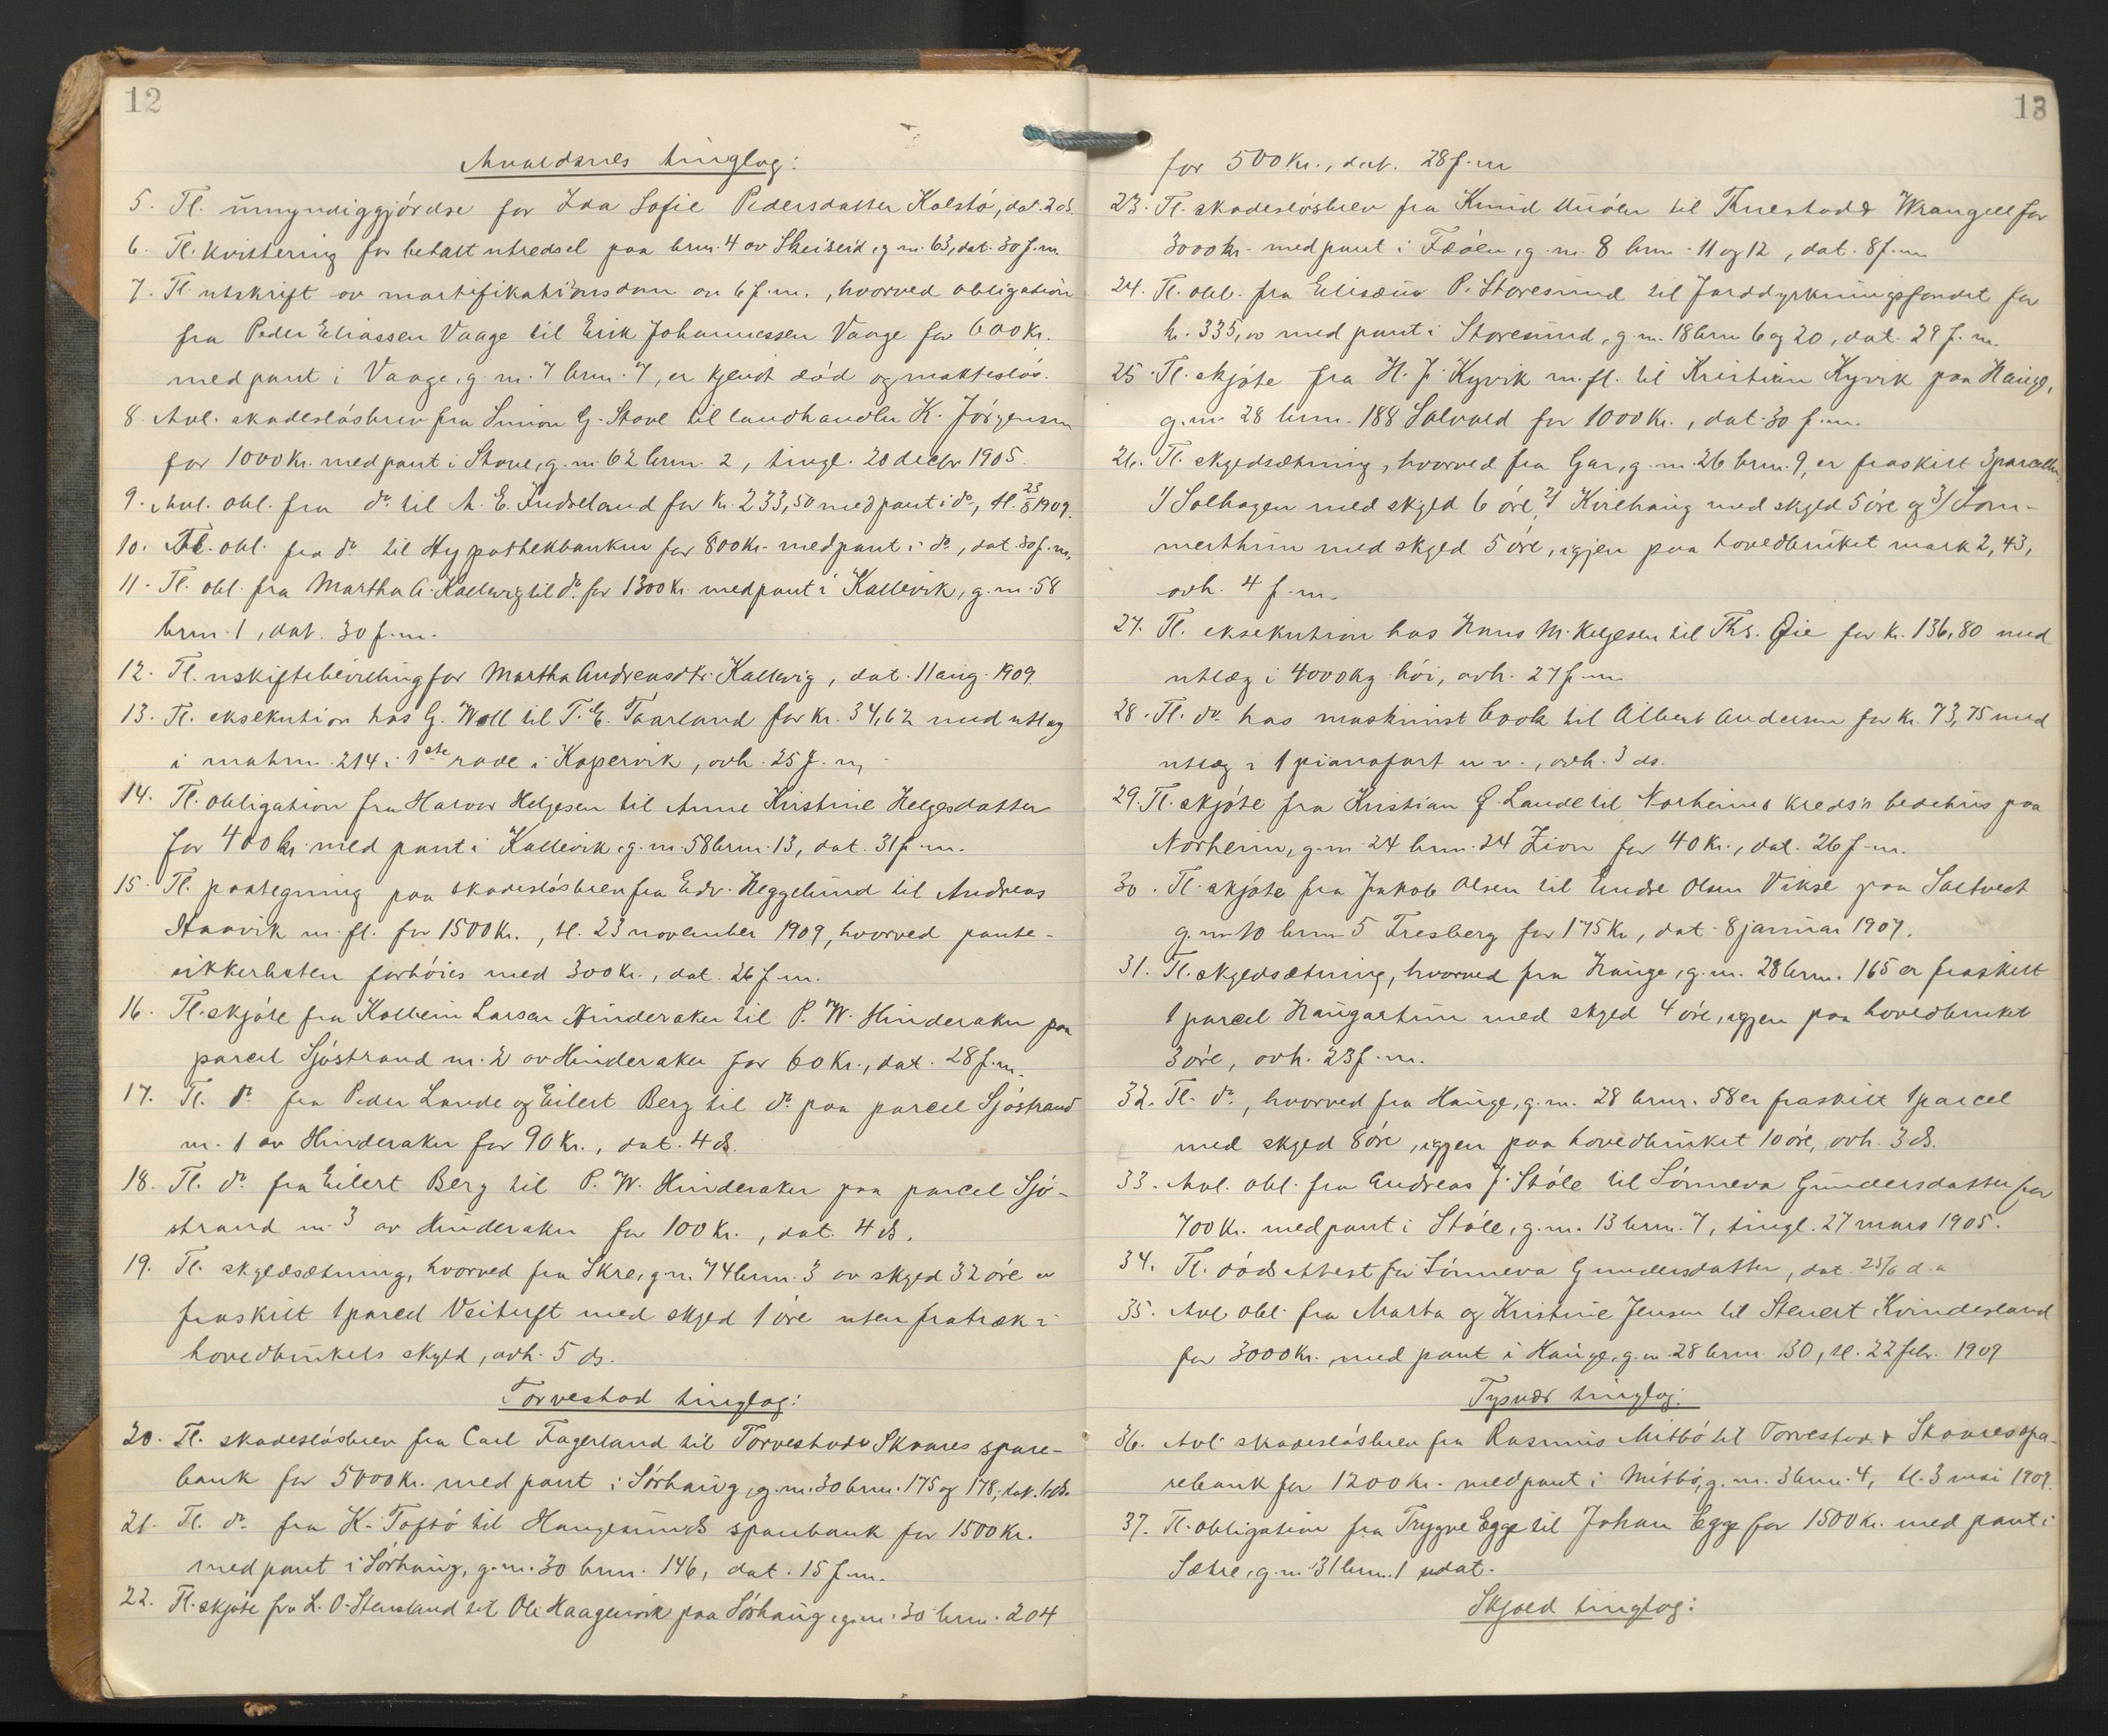 12
Avaldsnes tinglag:
5. Tl. umyndiggjörelse for Ida Sofie Pedersdatter Kolstö, dat. 2 ds.
6. Tl. kvittering for betalt utredsel paa brnr. 4 av Skeiseid, g.nr. 63, dat. 30 f.m.
7. Tl. utskrift av mortifikationsdom av 6 f.m., hvorved obligation
fra Peder Eliassen Vaage til Erik Johannessen Vaage for 600 Kr.
med pant i Vaage, g.nr. 7 brnr. 7, er kjendt död og magteslös.
8. Avl. skadeslösbrev fra Simon G. Stave til landhandler K. Jörgensen
for 1000 Kr. med pant i Stave, g.nr. 62 brnr. 2, tingl. 20 decbr 1905.
9. Avl. obl. fra do til A. E. Indreland for Kr. 233,50 med pant i do, tl. 23/8 1909.
10. Tl. obl. fra do til Hypothekbanken for 800 Kr. med pant i do, dat. 30 f.m.
11. Tl. obl. fra Martha A. Kallevig til do. for 1300 Kr. med pant i Kallevik, g.nr. 58
brnr. 1, dat. 30 f.m.
12. Tl. uskiftebevilling for Martha Andreasdtr. Kallevig, dat. 11 aug. 1909.
13. Tl. eksekution hos G. Woll til T. E. Taarland for Kr. 34,62 med utlæg
i matrnr. 214 i 1ste rode i Kopervik, avh. 25 f.m.
14. Tl. obligation fra Halvor Helgesen til Anne Kristine Helgesdatter
for 400 kr. med pant i Kallevik, g.nr. 58 brnr. 13, dat. 31 f.m.
15. Tl. paategning paa skadeslösbrev fra Edv. Heggelund til Andreas
Haavik m. fl. for 1500 Kr., tl. 23 november 1909, hvorved pante-
sikkerheten forhöies med 300 Kr., dat. 26 f.m.
16. Tl. skjöte fra Kolbein Larsen Hinderaker til P. W. Hinderaker paa
parcel Sjöstrand nr. 2 av Hinderaker for 60 Kr., dat. 28 f.m.
17. Tl. do fra Peder Lande og Eilert Berg til do. paa parcel Sjöstrand
nr. 1 av Hinderaker for 90 Kr., dat. 4 ds.
18. Tl. do fra Eilert Berg til P. W. Hinderaker paa parcel Sjö-
strand nr. 3 av Hinderaker for 100 Kr., dat. 4 ds.
19. Tl. skyldsætning, hvorved fra Skre, g.nr. 74 brnr. 3 av skyld 32 öre er
fraskilt 1 parcel Veituft med skyld 1 öre uten fratræk i
hovedbrukets skyld, avh. 5 ds.
Torvestad tinglag:
20. Tl. skadeslösbrev fra Carl Fagerland til Torvestad & Skaares spare-
bank for 5000 Kr. med pant i Sörhaug, g.nr. 30 brnr. 175 og 178, dat. 1 ds.
21. Tl. do. fra K. Toftö til Haugesunds sparebank for 1500 Kr.
med pant i Sörhaug, g.nr. 30 brnr. 146, dat. 15 f.m.
22. Tl. skjöte fra L. O. Stensland til Ole Haagenvik paa Sörhaug, g.nr. 30 brnr. 204
13
for 500 Kr., dat. 28 f.m
23. Tl. skadeslösbrev fra Knud til Wrangell for
3000 kr. med pant i Fæöen, g.nr. 8 brnr. 11 og 12, dat. 8 f.m.
24. Tl. obl. fra Elisæus P. Storesund til Jorddyrkningsfondet for
kr. 335,00 med pant i Storesund, g.nr. 18 brnr 6 og 20, dat. 29 f.m.
25. Tl. skjöte fra H. J. Kyvik m.fl. til Kristian Kyvik paa Hauge,
g.nr. 28 brnr. 188 Solvold for 1000 Kr., dat. 30 f.m.
26. Tl. skyldsætning, hvorved fra Gar, g.nr. 26 brnr. 9, er fraskilt 3 parceller,
1/ Solhagen med skyld 6 öre, 2/ Kvilhaug med skyld 5 öre og 3/ Tom-
mertun med skyld 5 öre, igjen paa hovedbruket mark 2,43,
avh. 4 f.m.
27. Tl. eksekution hos Hans M. Helgesen til Ths. Øie for Kr. 136,80 med
utlæg i 4000 kg. höi, avh. 27 f.m.
28. Tl. do. hos maskinist Cook til Albert Andersen for Kr. 73,75 med
utlæg i 1 pianofort m.v., avh. 3 ds.
29. Tl. skjöte fra Kristian G. Lande til Norheims kreds's bedehus paa
Norheim, g.nr. 24 brnr. 24 Zion for 40 Kr., dat. 26 f.m.
30. Tl. skjöte fra Jakob Olsen til Endre Olsen Vikse paa Saltveit
g.nr. 10 brnr. 5 Fresberg for 175 Kr., dat. 8 januar 1907.
31. Tl. skyldsætning, hvorved fra Hauge, g.nr. 28 brnr. 165 er fraskilt
1 parcel Haugartun med skyld 4 öre, igjen paa hovedbruket
3 öre, avh. 23 f.m.
32. Tl. do., hvorved fra Hauge, g.nr. 28 brnr. 58 er fraskilt 1 parcel
med skyld 8 öre, igjen paa hovedbruket 10 öre, avh. 3 ds.
33. Avl. obl. fra Andreas J. Ståle til Sönneva Gundersdatter for
700 Kr. med pant i Ståle, g.nr. 13 brnr. 7, tingl. 27 mars 1905.
34. Tl. dödsattest for Sönneva Gundersdatter, dat. 25/6 d.a
35. Avl obl. fra Marta og Kristine Jensen til Steuert Kvindesland
for 3000 Kr. med pant i Hauge, g.nr. 28 brnr. 130, tl. 22 febr. 1909
Tysvær tinglag:
36. Avl. skadeslösbrev fra Rasmus Mitbö til Torvestad & Skaares spa-
rebank for 1200 Kr. med pant i Mitbö, g.nr. 3 brnr. 4, tl. 3 mai 1909.
37. Tl. obligation fra Trygve Egge til Johan Egge for 1500 Kr. med pant i
Sætre, g.nr. 31 brnr. 1 udat.
Skjold tinglag: